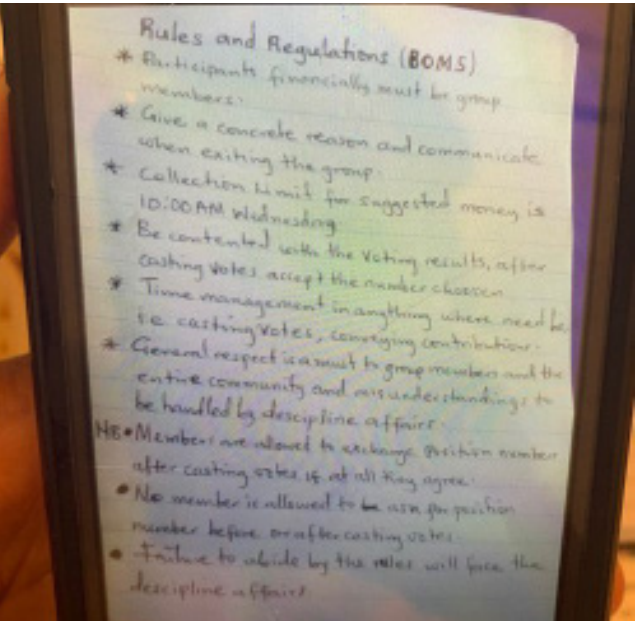 Rules and Regulations (BOMS)
* Participants financially must be group
members.
* Give a concrete reason and communicate
when exiting the group.
* Collection Limit for suggested money is
10:00AM Wednesday
* Be contented with the voting results, after
casting votes accept the number choosen
* Time management in anything where need be,
i.e. casting votes, conveying contributions.
* General respect is a must to group members and the
entire community and misunderstandings to
be handled by descipline affairs.
NB • Members are allowed to exchange position number
after casting votes if at all they agree.
• No member is allowed to be ask for position
number before or after casting votes.
• Failure to abide by the rules will face the
descipline affairs